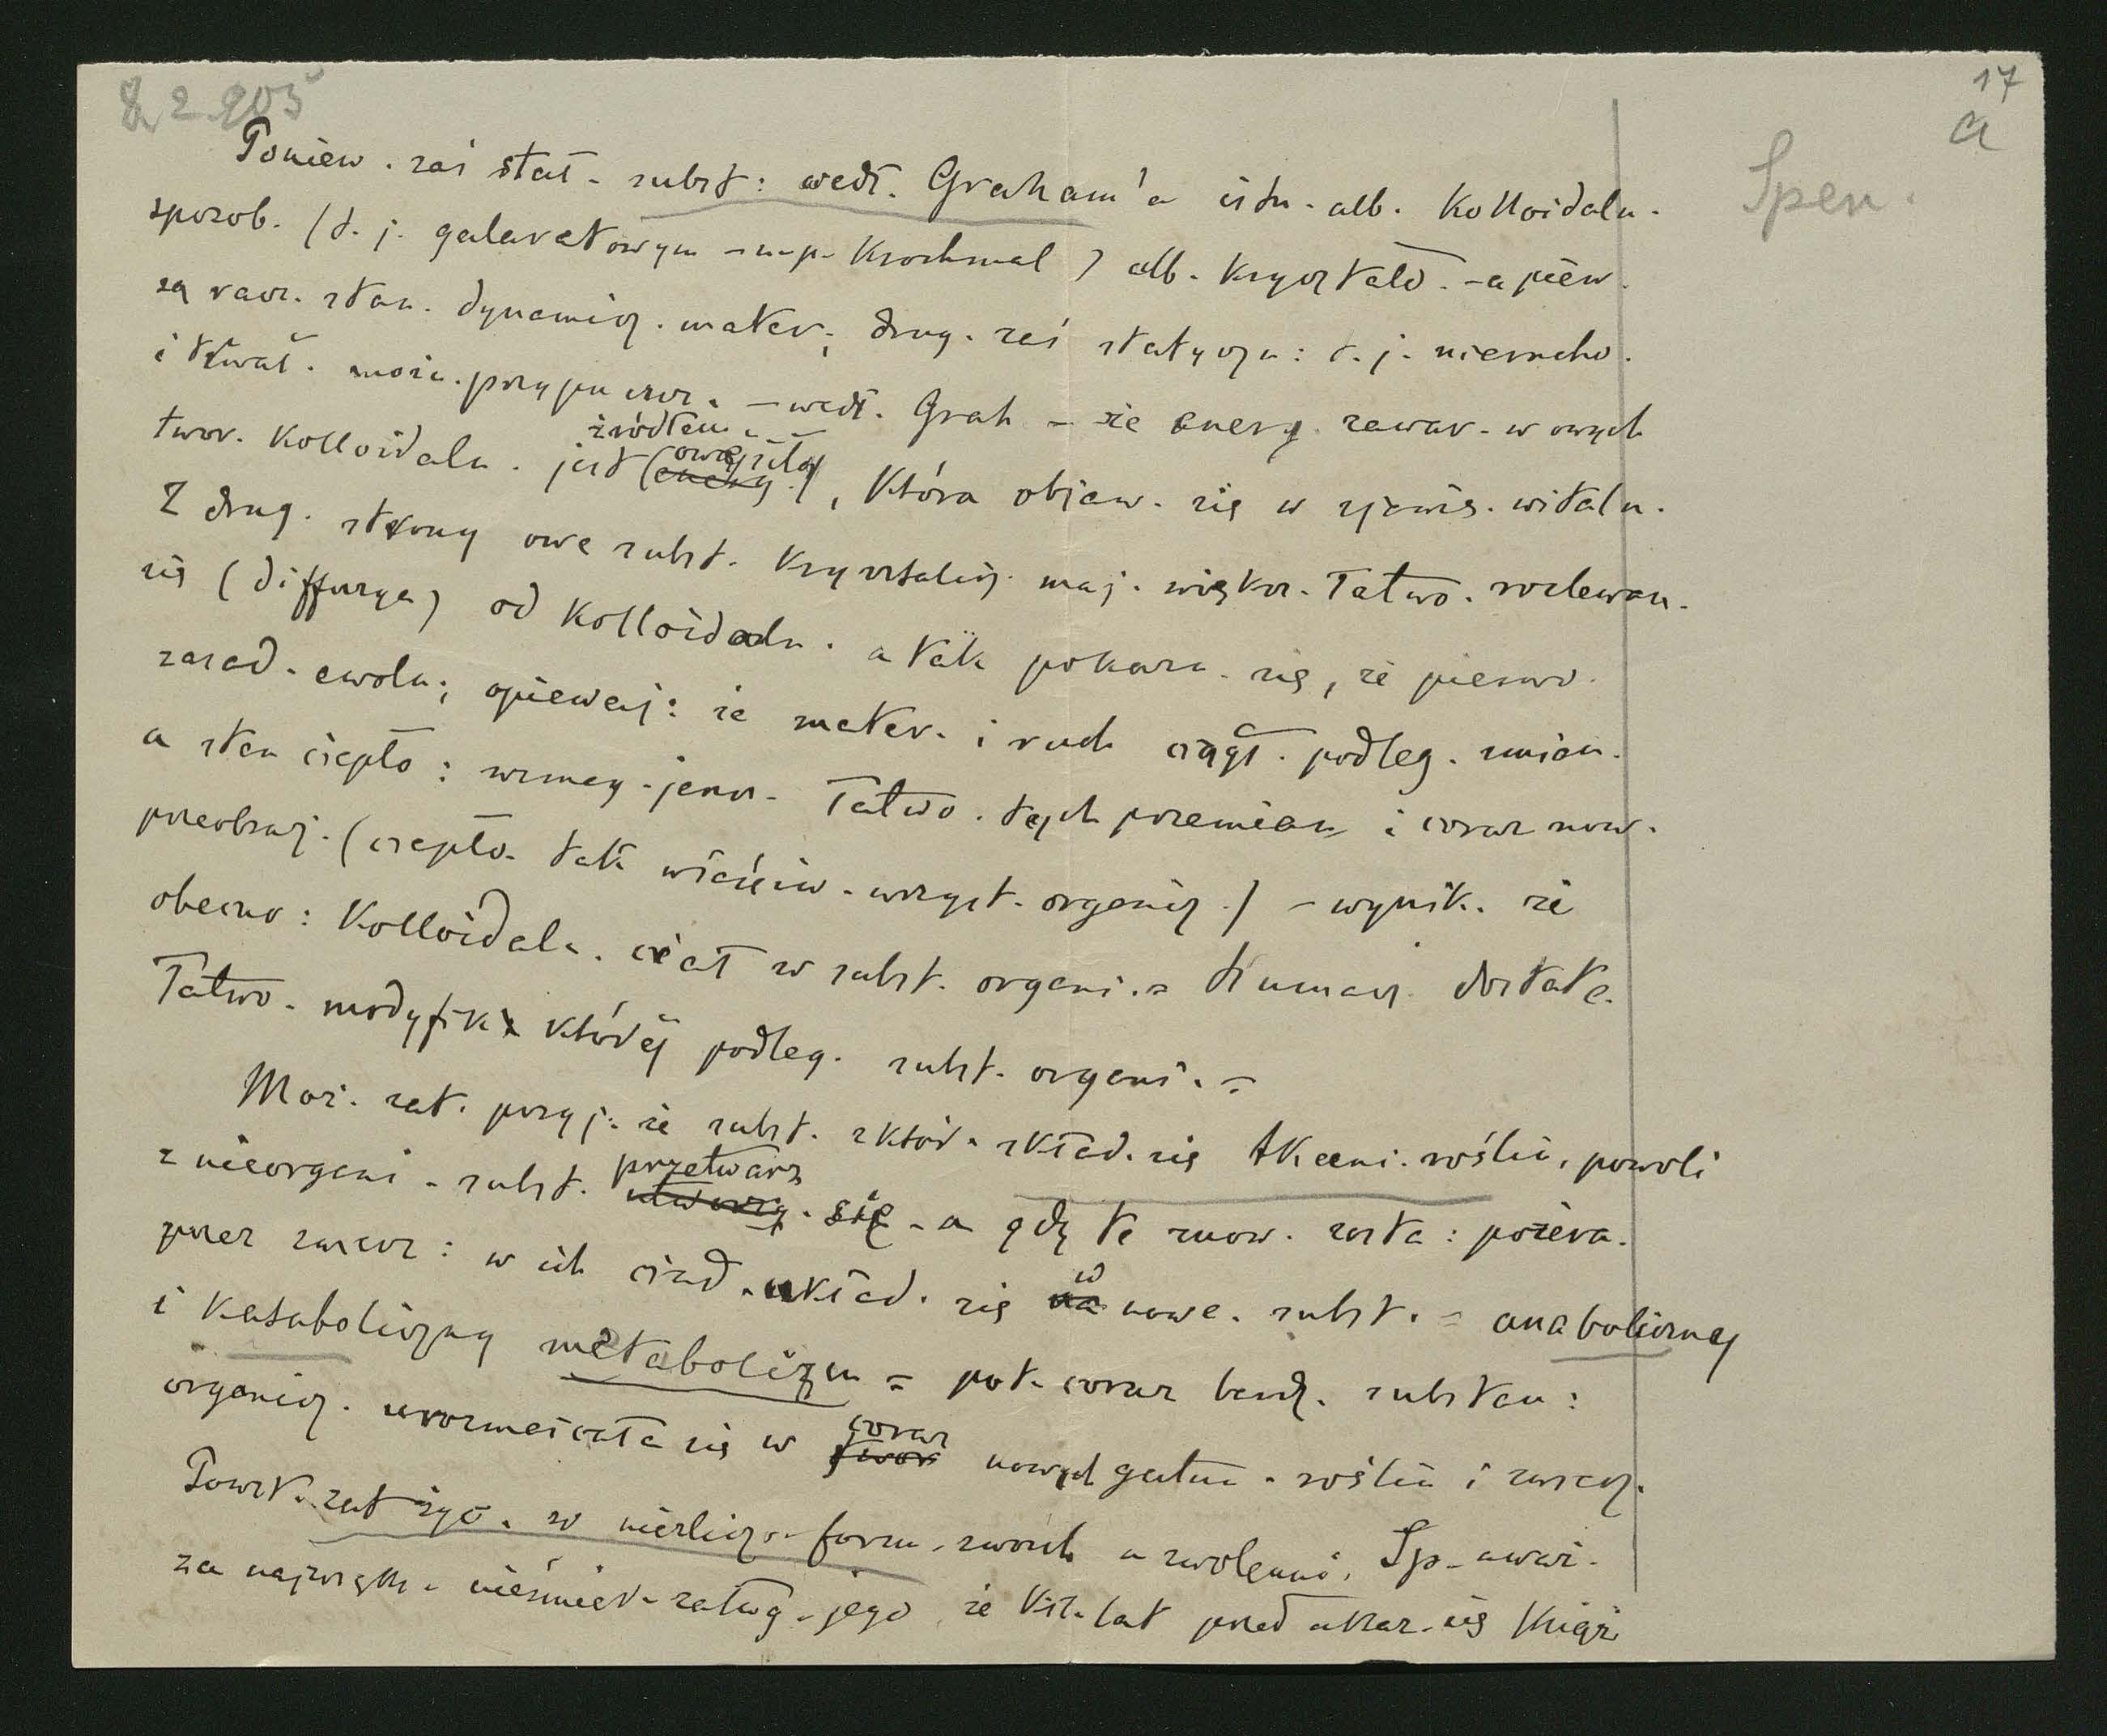 17
a
Spen.
Poniew. zaś stał. subst: wedł. Graham'a istn. alb. Kolloidaln.
sposob. (t. j. galaretowym - n.p. Krochmal) alb. Krystalo. - a pierw.
są racz. stan. dynamicz. mater; drug. zaś statyczn: t. j. nierucho.
i trwał. możn. przypuszcz. - wedł. Grah - że energ. zawar. w owych
twor. Kolloidaln. jest (energ.), która objaw. się w zjawis. witaln.
źródłem
Z drug. strony owe subst. Krystalicz. maj. większ. łatwo. rozlewan.
się (diffuzya) od Kolloidaln. a tak pokazu. się, że pierwo.
zasad. ewolu; opiewaj: że mater. i ruch ciągł. podleg. zmian.
a stan ciepło: wzmag. jeszcz. łatwo. tych przemian i coraz now.
przeobraż. (ciepło. tak właściw. wszyst. organicz.) - wynik. że
obecno: Kolloidaln. ciał w subst. organi. = tłumacz. dostate.
łatwo. modyfik. której podleg. subst. organi. =
Moż. zat. przyj: że subst. z któr. skład. się tkanni. roślin, powoli
z nieorgani. subst. utworzy. się - a gdy te znow. zosta: pożera.
przetwarz
przez zwierz: w ich ciał. układ. się na nowe. subst. = anaboliczny
w
i Kataboliczny metabolizm = pot. coraz bardz. substan:
organicz. urozmaicała się w twor nowych gatun. roślin i zwierz.
coraz
Powst. zat życ. w niezlicz. form. swoich a zwolenni. Sp. uważ.
za najwięk. nieśmiert. zasług. jego, że kil. lat przed ukaz. się Księż